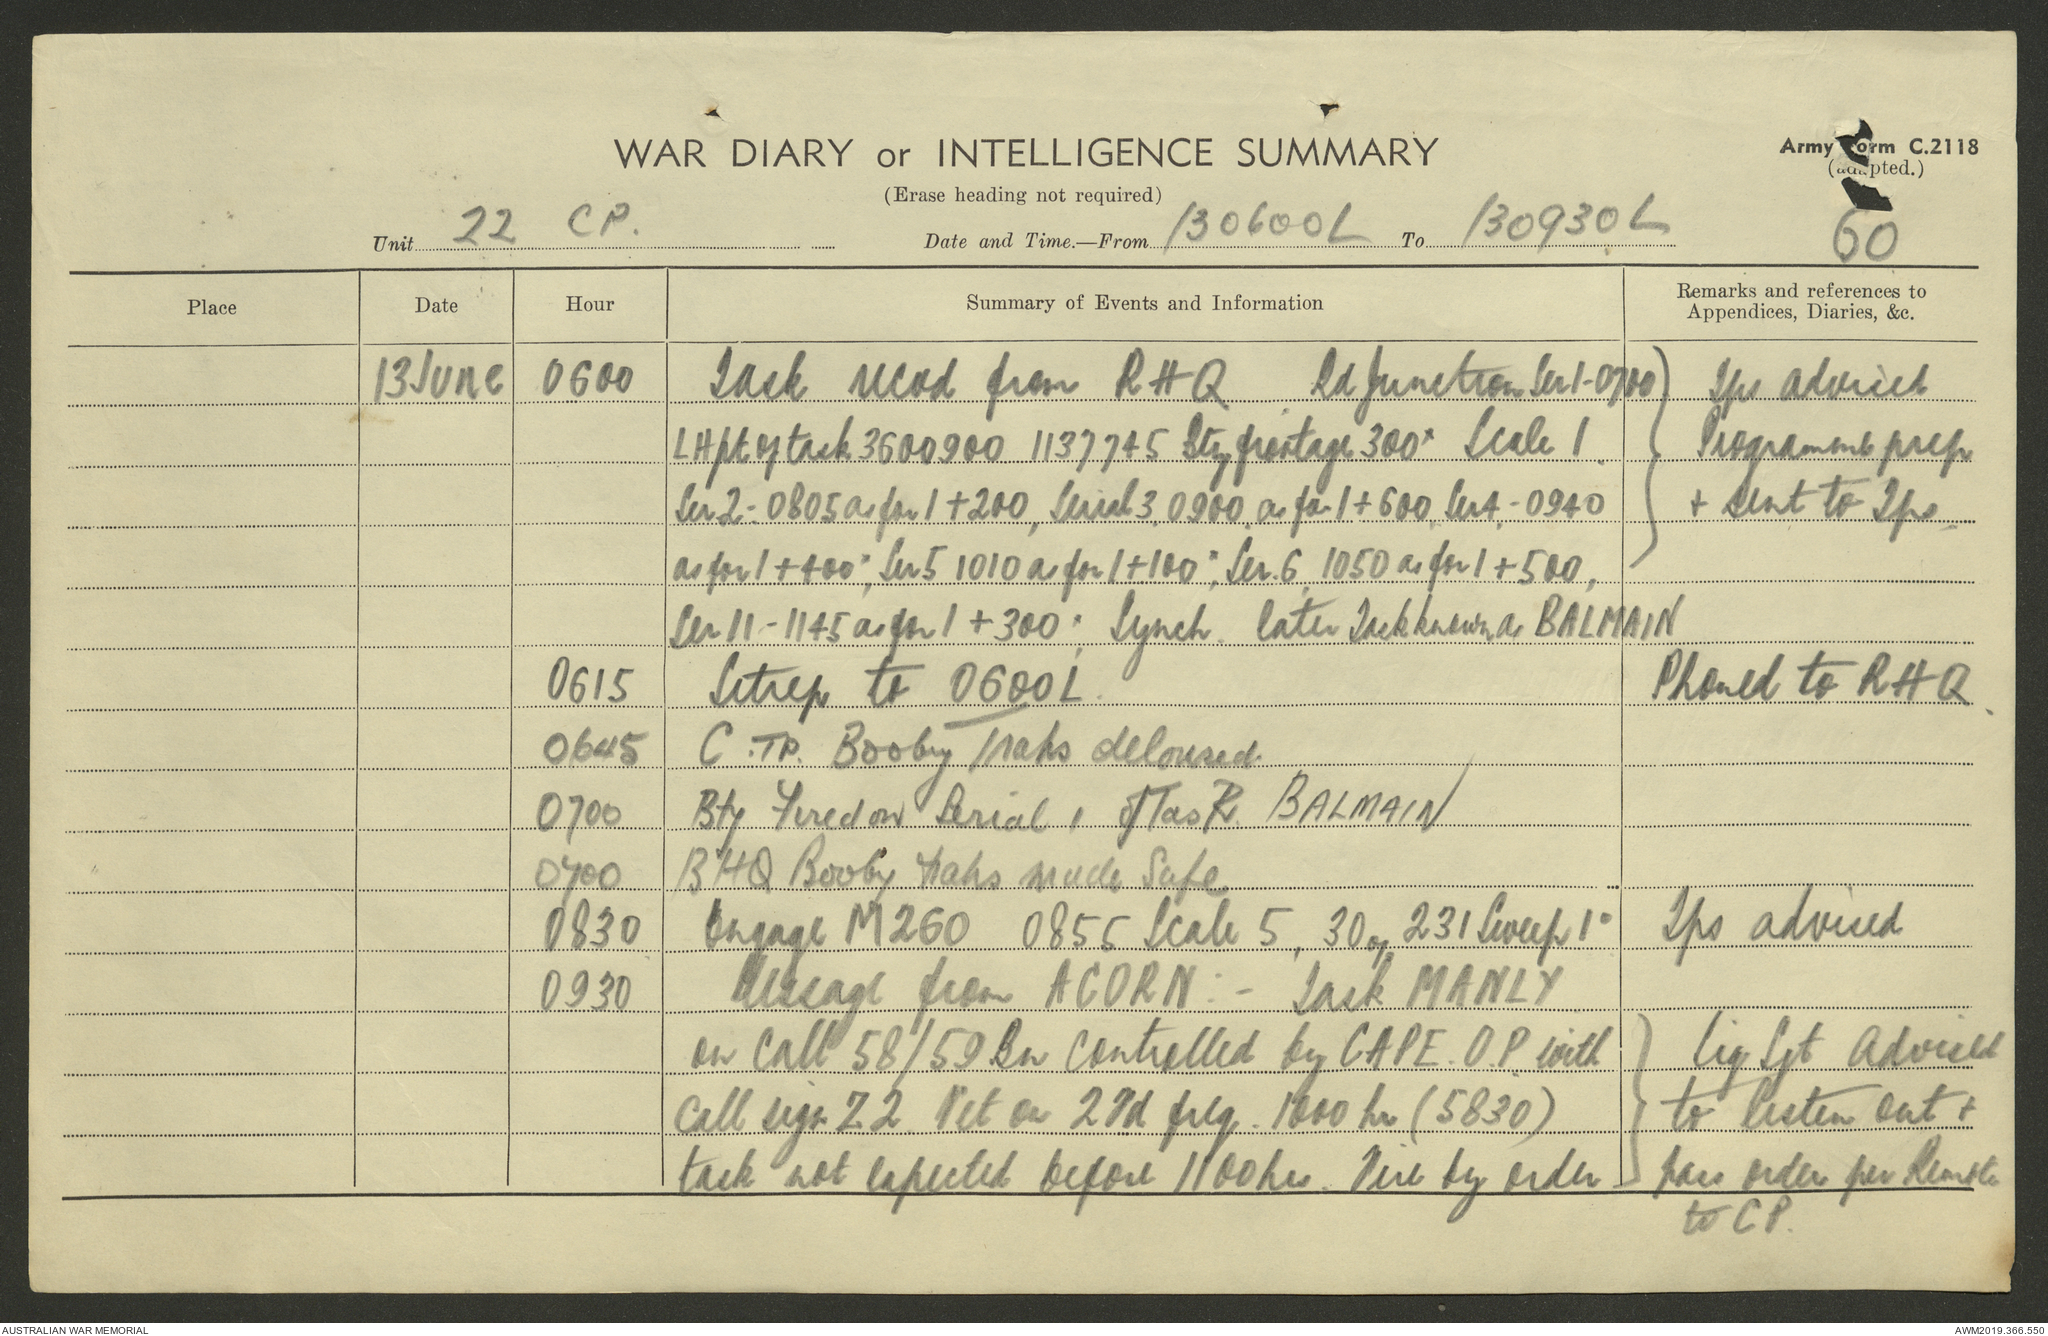 WAR DIARY or INTELLIGENCE SUMMARY
Army Form C.2118
(adapted.)
(Erase heading not required)
Unit 22 CP. Date and Time.—From 130600L To 130930L
60
Place Date Hour Summary of Events and Information Remarks and references to Appendices, Diaries, &c.
13 June 0600 Task recvd from RHQ Rd Junction Ser 1-0700 Tps advised
LH pt of task 3600900 1137745 Bty frontage 300ˣ Scale 1. Programme prep
Ser 2- 0805 as for 1 + 200, Serial 3 0900 as for 1 + 600, Ser 4 - 0940 + sent to Tps
as for 1 + 400ˣ, Ser 5 1010 as for 1 + 100ˣ, Ser. 6 1050 as for 1 + 500,
Ser 11 - 1145 as for 1 + 300ˣ Synch later Task known as BALMAIN
0615 Sitrep to 0600L. Phoned to RHQ
0645 C .TP. Booby Traps deloused.
0700 Bty Fired on Serial 1 of Task BALMAIN
0700 BHQ Booby traps made Safe
0830 Engage M260 0855 Scale 5, 30, 231 Sweep 1° Tps advised
0930 Message from ACORN :- Task MANLY
on call 58/59 Bn controlled by CAPE O.P. with Sig Sgt Advised
call sign Z2 Net on 2nd freq. 1000 hrs (5830) to listen out +
task not expected before 1100 hrs. Fire by order pass orders per Remote
to CP.
AUSTRALIAN WAR MEMORIAL
AWM2019.366.550